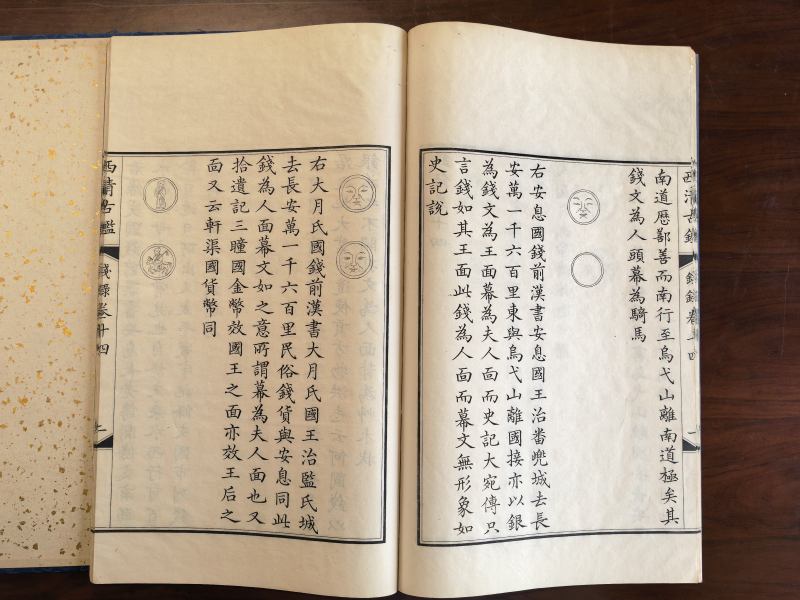 南道歷鄯善而南行至烏弋山離南道極矣其
錢文為人頭幕為騎馬
右安息國錢前漢書安息國王治番兜城去長
安萬一千六百里東與烏弋山離國接亦以銀
為錢文為王面幕為夫人面而史記大宛傳只
言錢如其王面此錢為人面而幕文無形象如
史記說
右大月氏國錢前漢書大月氏國王治監氏城
去長安萬一千六百里民俗錢貨與安息同此
錢為人面幕文如之意所謂幕為夫人面也又
拾遺記三瞳國金幣效國王之面亦效王后之
面又云軒渠國貨幣同
西清古鑑
錢錄卷十四